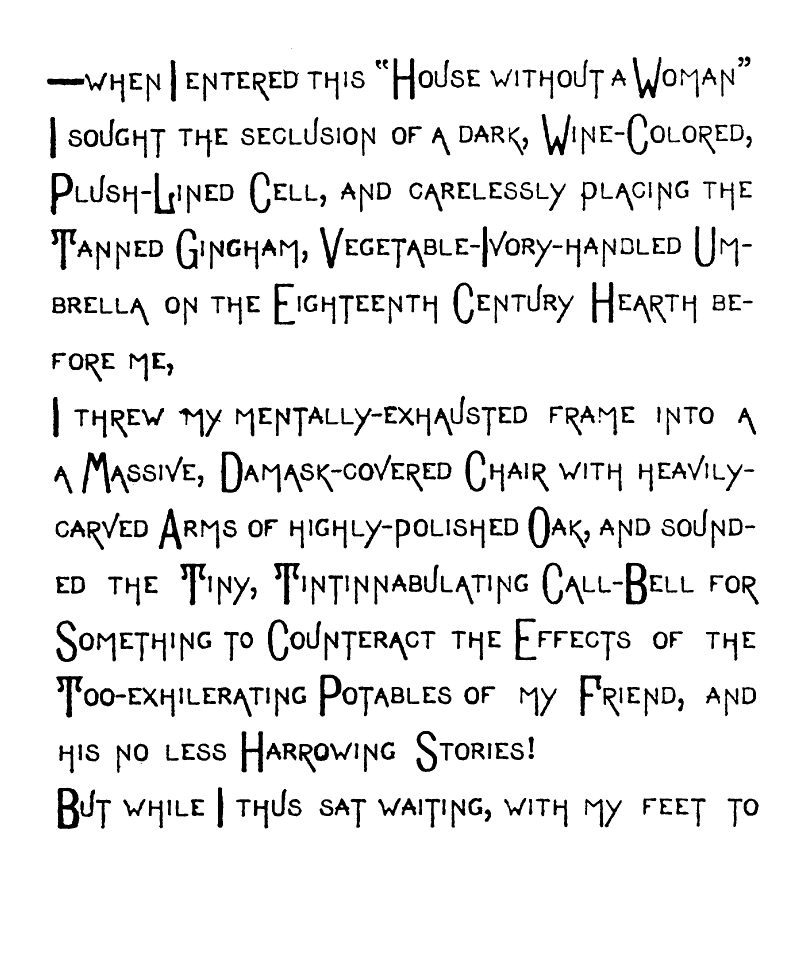 —when I entered this “House without a Woman”
I sought the seclusion of a dark, Wine-Colored,
Plush-Lined Cell, and carelessly placing the
Tanned Gingham, Vegetable-Ivory-handled Um-
brella on the Eighteenth Century Hearth be-
fore me,
I threw my mentally-exhausted frame into a
a Massive, Damask-covered Chair with heavily-
carved Arms of highly-polished Oak, and sound-
ed the Tiny, Tintinnabulating Call-Bell for
Something to Counteract the Effects of the
Too-exhilerating Potables of my Friend, and
his no less Harrowing Stories!
But while I thus sat waiting, with my feet to